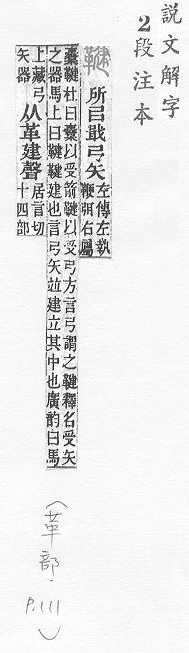 說文解字
2段注本
鞬 所㠯戢弓矢 左傳左執
鞭弭右屬
櫜鞬杜曰櫜以受箭鞬以受弓方言弓謂之鞬釋名受矢
之器馬上曰鞬鞬建也言弓矢竝建立其中也廣韵曰馬
上藏弓
矢器 从革建聲 居言切
十四部
(革部, P.111)